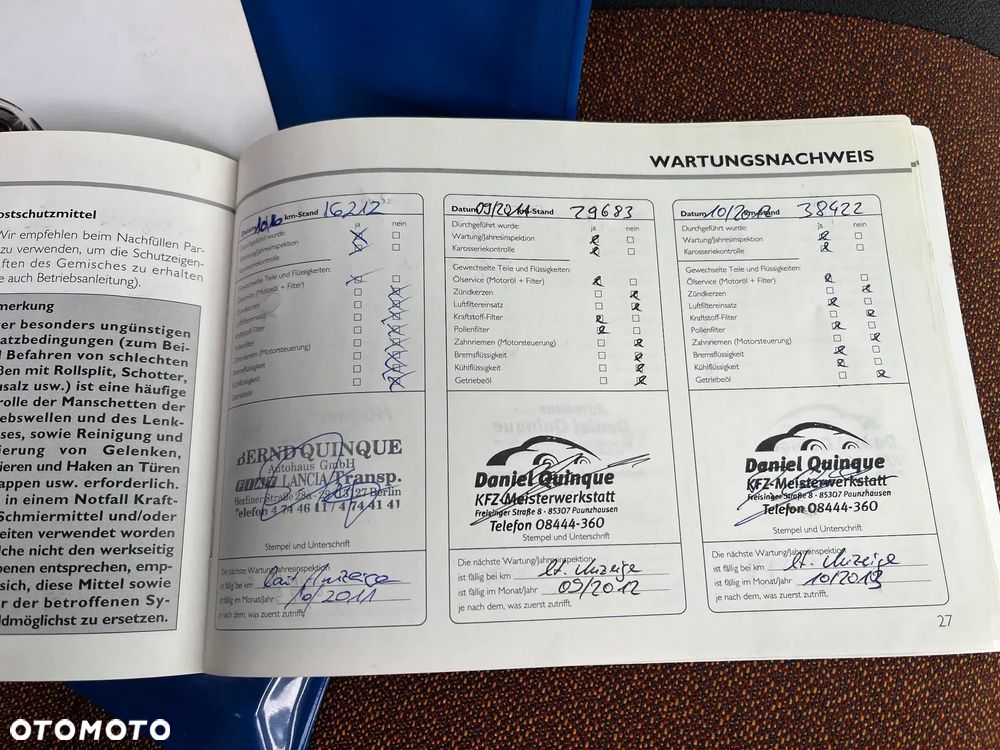 WARTUNGSNACHWEIS
ostschutzmittel
Wir empfehlen beim Nachfüllen Par-
zu verwenden, um die Schutzeigen-
ften des Gemisches zu erhalten
e auch Betriebsanleitung).
merkung
er besonders ungünstigen
atzbedingungen (zum Bei-
l Befahren von schlechten
ßen mit Rollsplit, Schotter,
usalz usw.) ist eine häufige
rolle der Manschetten der
ebswellen und des Lenk-
ses, sowie Reinigung und
ierung von Gelenken,
ieren und Haken an Türen
appen usw. erforderlich.
in einem Notfall Kraft-
Schmiermittel und/oder
eiten verwendet worden
lche nicht den werkseitig
benen entsprechen, emp-
sich, diese Mittel sowie
r der betroffenen Sy-
ldmöglichst zu ersetzen.
Datum 10/10 km-Stand 16212
ja nein
Durchgeführt wurde:
Wartung/Jahresinspektion
Karosseriekontrolle
Gewechselte Teile und Flüssigkeiten:
Ölservice (Motoröl + Filter)
Zündkerzen
Luftfiltereinsatz
Kraftstoff-Filter
Pollenfilter
Zahnriemen (Motorsteuerung)
Bremsflüssigkeit
Kühlflüssigkeit
Getriebeöl
BERND QUINQUE
Autohaus GmbH
FIAT LANCIA Transp.
Berliner Straße 28a 13127 Berlin
Telefon 4 74 46 11 / 4 74 41 41
Stempel und Unterschrift
Die nächste Wartung/Jahresinspektion
ist fällig bei km laut Anzeige
ist fällig im Monat/Jahr 10/2011
je nach dem, was zuerst zutrifft.
Datum 09/2011 km-Stand 29683
Durchgeführt wurde: ja nein
Wartung/Jahresinspektion
Karosseriekontrolle
Gewechselte Teile und Flüssigkeiten:
Ölservice (Motoröl + Filter)
Zündkerzen
Luftfiltereinsatz
Kraftstoff-Filter
Pollenfilter
Zahnriemen (Motorsteuerung)
Bremsflüssigkeit
Kühlflüssigkeit
Getriebeöl
Daniel Quinque
KFZ-Meisterwerkstatt
Freisinger Straße 8 · 85307 Paunzhausen
Telefon 08444-360
Stempel und Unterschrift
Die nächste Wartung/Jahresinspektion
ist fällig bei km lt. Anzeige
ist fällig im Monat/Jahr 09/2012
je nach dem, was zuerst zutrifft.
Datum km-Stand 38422
Durchgeführt wurde: ja nein
Wartung/Jahresinspektion
Karosseriekontrolle
Gewechselte Teile und Flüssigkeiten:
Ölservice (Motoröl + Filter)
Zündkerzen
Luftfiltereinsatz
Kraftstoff-Filter
Pollenfilter
Zahnriemen (Motorsteuerung)
Bremsflüssigkeit
Kühlflüssigkeit
Getriebeöl
Daniel Quinque
KFZ-Meisterwerkstatt
Freisinger Straße 8 · 85307 Paunzhausen
Telefon 08444-360
Stempel und Unterschrift
Die nächste Wartung/Jahresinspektion
ist fällig bei km lt. Anzeige
ist fällig im Monat/Jahr 10/2013
je nach dem, was zuerst zutrifft.
27
OTOMOTO